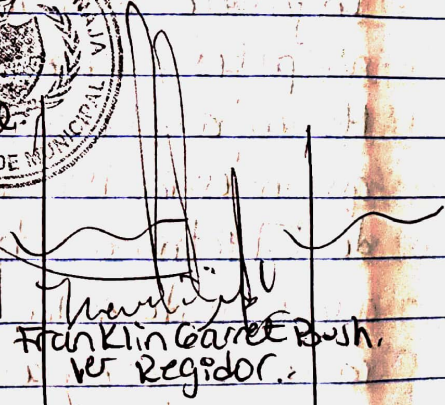 DE MUNICIPAL
Franklin Garret Bush.
1er Regidor.